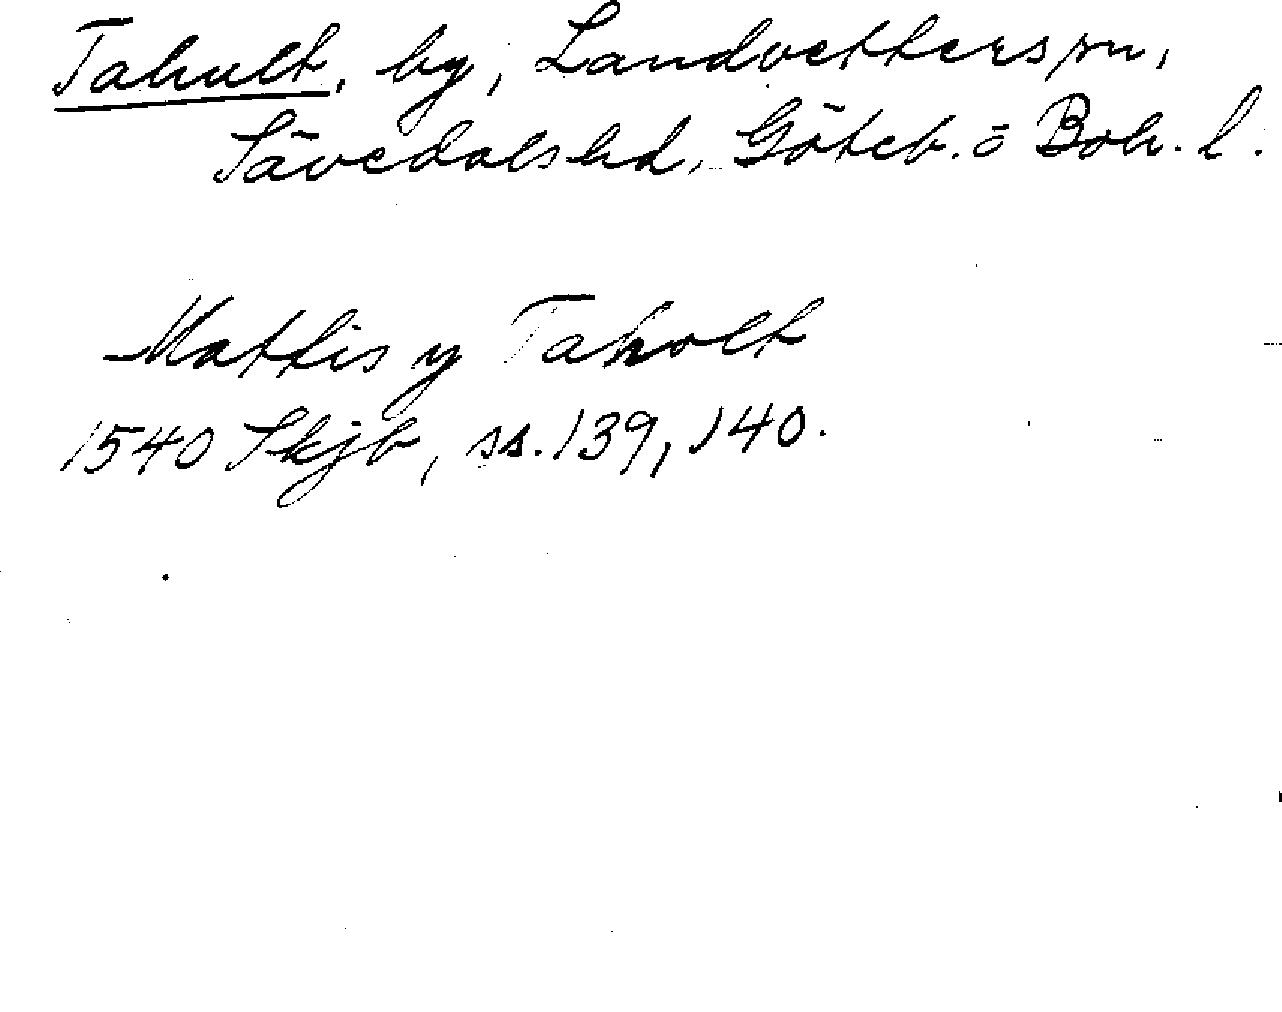 Tahult, by, Landvetters sn,
Sävedals hd, Göteb. o Boh. l.
Mattis y Taholt
1540 Skjb, ss. 139, 140.